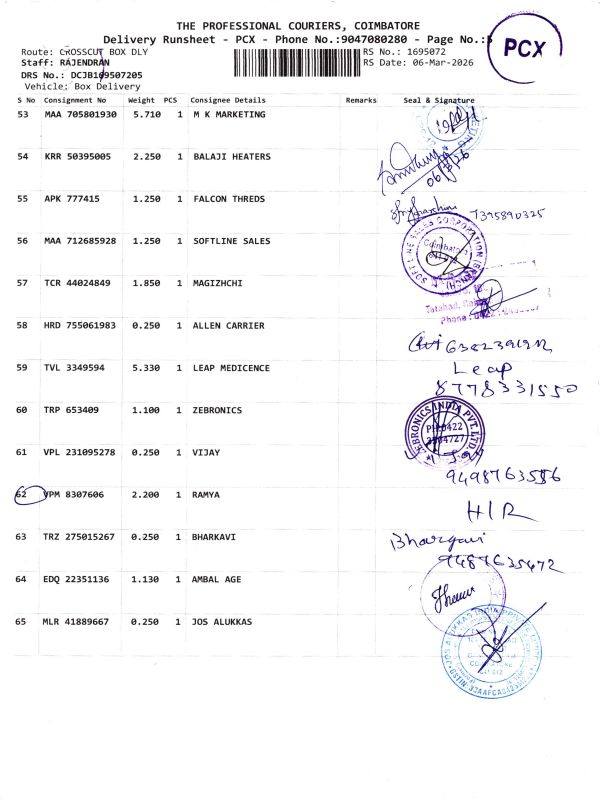 THE PROFESSIONAL COURIERS, COIMBATORE
Delivery Runsheet - PCX - Phone No.:9047080280 - Page No.:
PCX
Route: CROSSCUT BOX DLY
RS No.: 1695072
Staff: RAJENDRAN
RS Date: 06-Mar-2026
DRS No.: DCJB169507205
Vehicle: Box Delivery
S No Consignment No Weight PCS Consignee Details Remarks Seal & Signature
53 MAA 705801930 5.710 1 M K MARKETING
54 KRR 50395005 2.250 1 BALAJI HEATERS
06/3/26
55 APK 777415 1.250 1 FALCON THREDS
7395890325
56 MAA 712685928 1.250 1 SOFTLINE SALES
SOFTLINE SALES CORPORATION (BRANCH)
Coimbatore
57 TCR 44024849 1.850 1 MAGIZHCHI
Tatabad,
Phone : 0422
58 HRD 755061983 0.250 1 ALLEN CARRIER
59 TVL 3349594 5.330 1 LEAP MEDICENCE
Leap
8778331550
60 TRP 653409 1.100 1 ZEBRONICS
ZEBRONICS INDIA PVT. LTD.
61 VPL 231095278 0.250 1 VIJAY
9498763556
62 VPM 8307606 2.200 1 RAMYA
H/R
63 TRZ 275015267 0.250 1 BHARKAVI
Bhargavi
9489635472
64 EDQ 22351136 1.130 1 AMBAL AGE
65 MLR 41889667 0.250 1 JOS ALUKKAS
JOS ALUKKAS INDIA